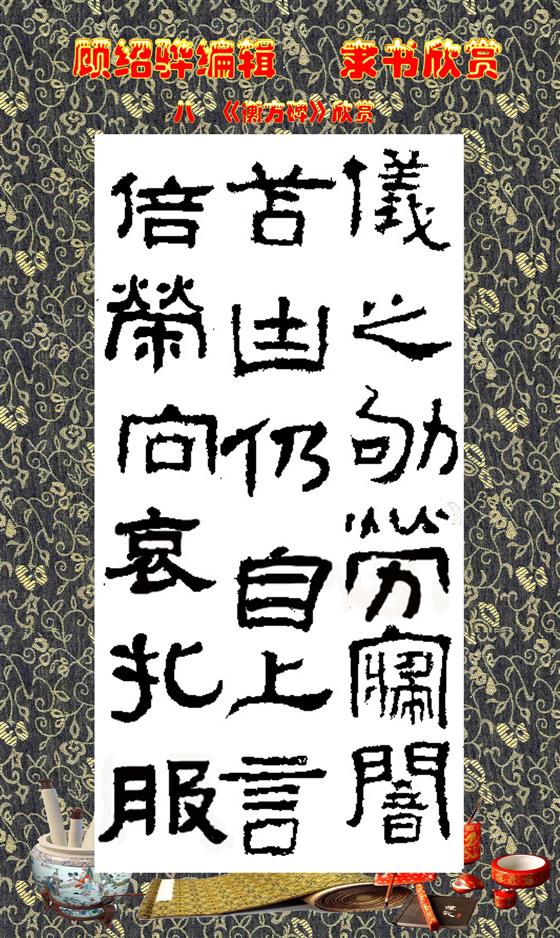 顾绍骅编辑 隶书欣赏
八 《衡方碑》欣赏
儀之劬勞寢闇
苫凷仍自上言
倍榮向哀礼服